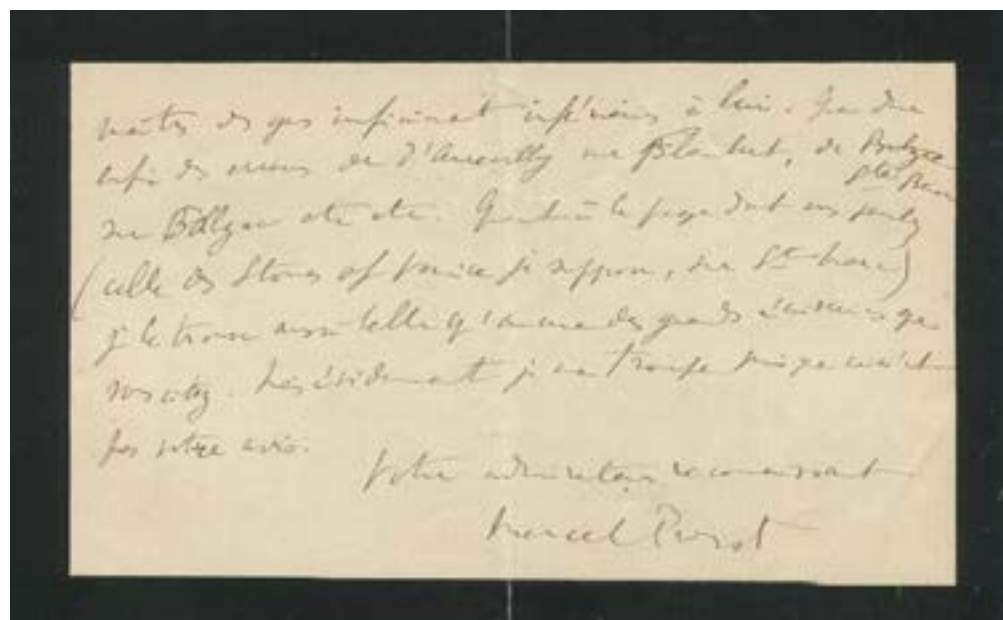 infiniment inférieurs à lui. Que dire
enfin des erreurs de d'Aurevilly sur Flaubert, de
sur etc etc. Quant à la page dont vous parlez
(celle des Stones of Venice je suppose, sur St Marc)
je la trouve aussi belle qu'aucune des grands écrivains que
vous citez. Mais évidemment je me trompe puisque ce n'est
pas votre avis.
Votre admirateur reconnaissant
Marcel Proust